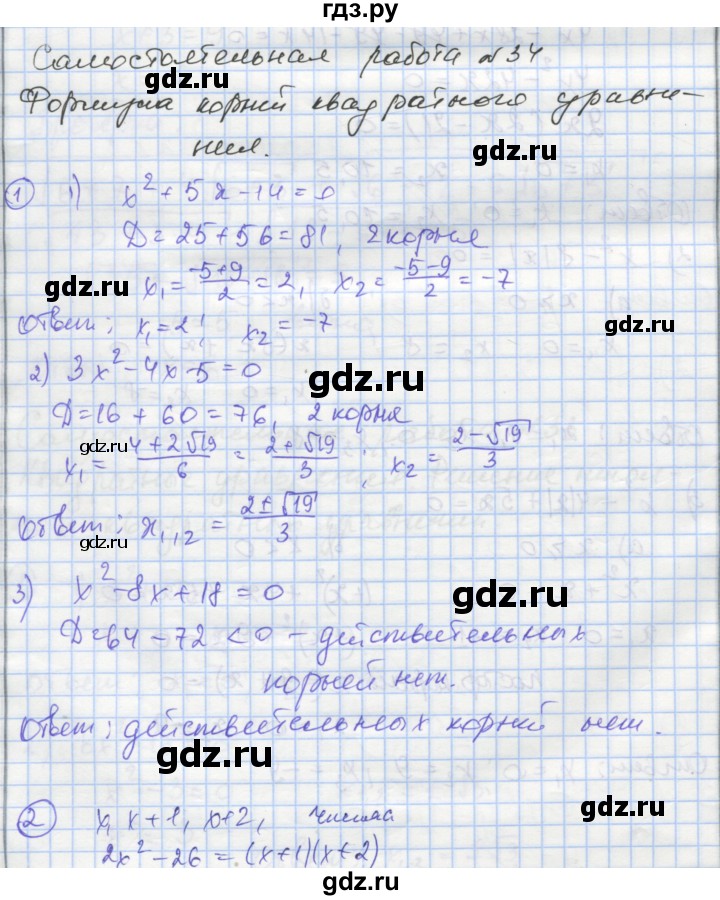 гдз.ру
Самостоятельная работа №34
Формула корней квадратного уравне-
ния.
① 1) x² + 5x - 14 = 0
D = 25 + 56 = 81, 2 корня
x₁ = (-5+9)/2 = 2, x₂ = (-5-9)/2 = -7
Ответ: x₁ = 2; x₂ = -7
2) 3x² - 4x - 5 = 0
D = 16 + 60 = 76, 2 корня
x₁ = (4+2√19)/6 = (2+√19)/3; x₂ = (2-√19)/3
Ответ: x₁,₂ = (2±√19)/3
3) x² - 8x + 18 = 0
D = 64 - 72 < 0 - действительных
корней нет.
Ответ: действительных корней нет.
② x, x+1, x+2, числа
2x² - 26 = (x+1)(x+2)
gdz.ru